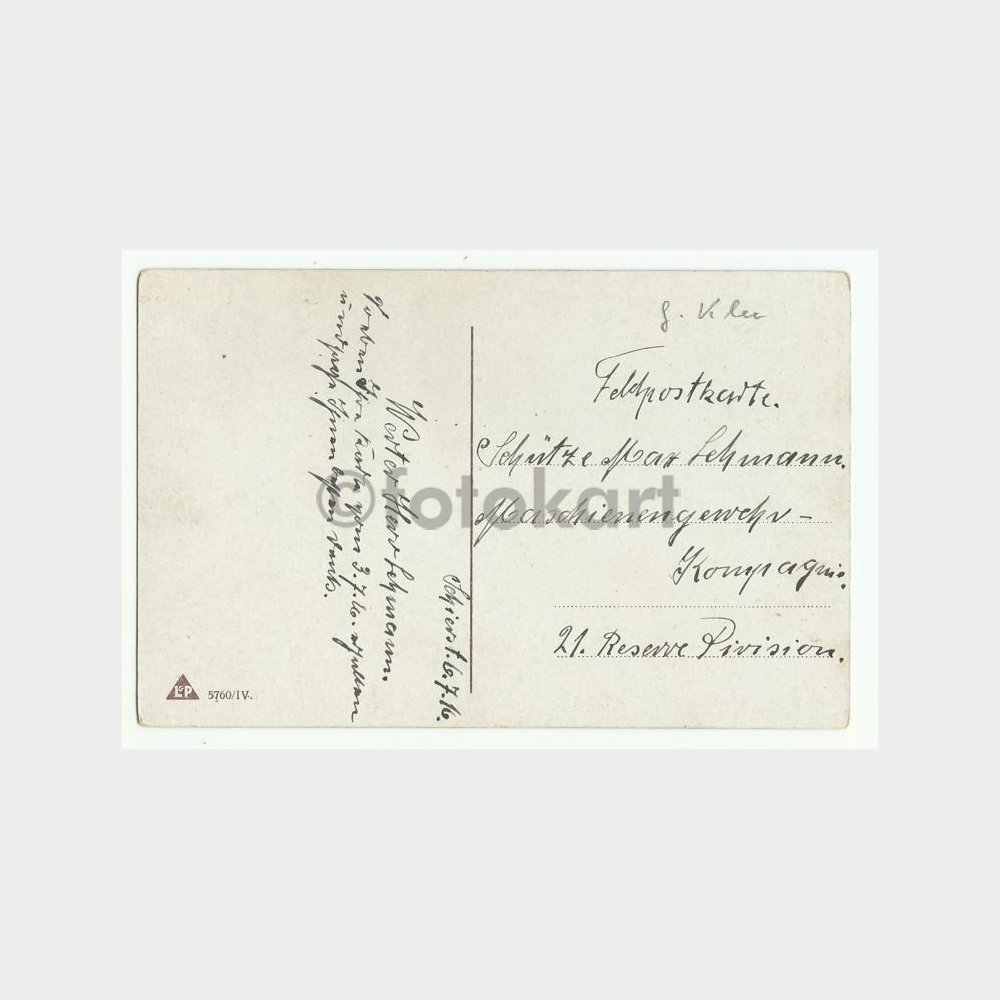 Feldpostkarte.
Schütze Max Lehmann.
Maschienengewehr-
Kompagnie.
21. Reserve Division.
Schierst. 6.7.16.
Werter Herr Lehmann.
Soeben Ihre Karte vom 3.7.16. erhalten
und sage Ihnen besten Dank.
L&P 5760/IV.
©fotokart